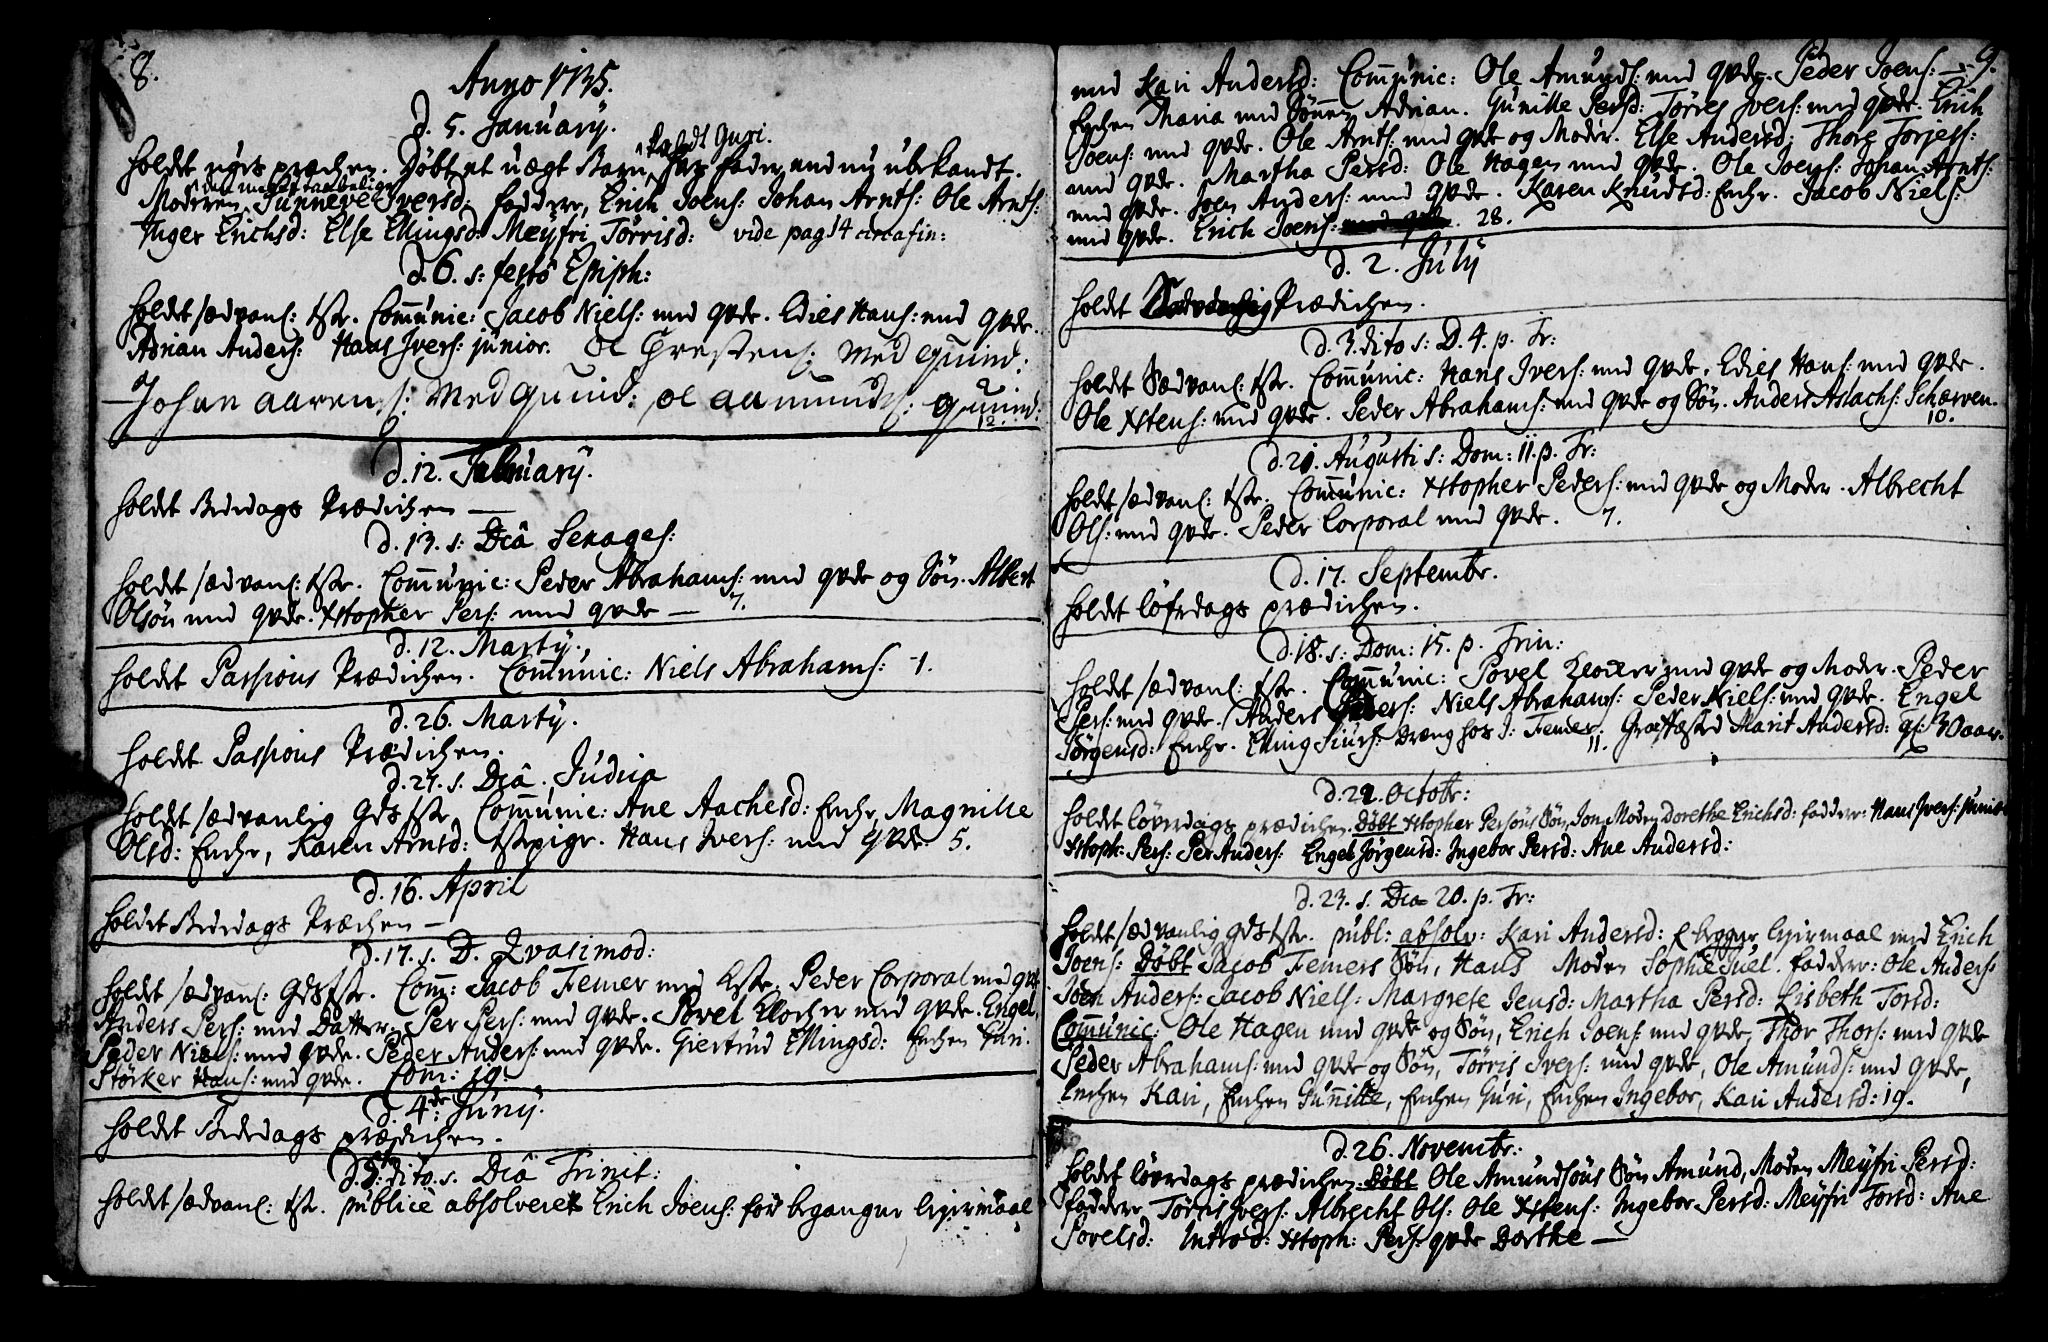 8.
Anno 1735.
d. 5. January.
kaldt Guri.
Holdt præchen. Døbt et uægt Barn, fader end nu ubekandt.
Moderen Sunneve Ivers d: faddere, Erich Joens: Johan Arnts: Ole Arnts:
Inger Erichsd: Else Ellingsd: Meyfri Tørrisd: vide pag 14 circa fin:
d. 6. s: festo Epiph:
Holdet sædvanl: tste. Communic: Jacob Niels: med qvde. Edies Hans: med qvde.
Adrian Anders: Hans Ivers: junior. Ol Chrestens: Med quind:
Johan aarens: Med quind: ol aamunds: quind:
12.
d. 12. February.
Holdet Bededags Prædichen —
d. 13. s: Dca Sexages:
Holdet sædvanl: tste. Communic: Peder Abrahams: med qvde og Søn. Albert
Olsøn med qvde. Xstopher Pers: med qvde — 7.
d. 12. Marty.
Holdet Passions Prædichen. Communic: Niels Abrahams: 1.
d. 26. Marty.
Holdet Passions Prædichen.
d. 27. s. Dca, Judica
Holdet sædvanlig Gdstste, Communic: Ane Aachesd: Enche, Magnille
Olsd: Enche, Karen Arnsd: tstepige. Hans Ivers: med qvde 5.
d. 16. April
Holdet Bededags Præchen —
d. 17. s. D. Qvasimod:
Holdet sædvanl: Gdstste. Com: Jacob Femer med Kste, Peder Corporal med qvde
Anders Pers: med Datter, Per Pers: med qvde. Povel Klocher med qvde. Engel,
Peder Niels: med qvde. Peder Anders: med qvde. Giertrud Ellingsd: Enchen Guri.
Størker Hans: med qvde. Com: 19.
d. 4de Juny.
Holdet Bededags prædichen.
d. 5. dito. s. Dca Trinit:
Holdet sædvanl: tste. publicè absolveret Erich Joens: for begangne Leyermaal
9.
med Kari Andersd: Communic: Ole Amunds: med qvde. Peder Joens: —
Enchen Maria med Sønnen Adrian. Gunille Persd: Tørres Ivers: med qvde. Erich
Joens: med qvde. Ole Arnts: med qvde og Moder. Else Andersd: Thore Torjess:
med qvde. Martha Persd: Ole Hagen med qvde. Ole Joens: Johan Arnts:
med qvde. Joen Anders: med qvde. Karen Knudsd: Enche. Jacob Niels:
med qvde. Erich Joens: 28.
d. 2. July
Holdet Prædichen.
d. 3. dito s: D. 4. p. Tr:
Holdet Sædvanl: tste. Communic: Hans Ivers: med qvde, Edies Hans: med qvde.
Ole Xstens: med qvde. Peder Abrahams: med qvde og Søn. Anders Aslachs: Schærven.
10.
d. 21. Augusti s: Dom: 11. p. Tr:
Holdet sædvanl: tste. Communic: Xstopher Peders: med qvde og Moder. Albrecht
Ols: med qvde. Peder Corporal med qvde. 7.
d. 17. Septembr.
Holdet løferdags prædichen.
d. 18. s: Dom: 15. p. Trin:
Holdet sædvanl: tste. Communic: Povel Klocker med qvde og Moder. Peder
Pers: med qvde. Anders Peders: Niels Abrahams: Peder Niels: med qvde. Engel
Jørgensd: Enche. Elling Siurs: Dræng hos J: Femer. Græsfæsted Marit Andersd: gl: 30 aar.
11.
d. 22. Octobr:
Holdet løverdags prædichen. Døbt Xstopher Persøns Søn, Jon, Moder Dorethe Erichsd: faddere: Hans Ivers: junior
Xstoph: Pers: Per Anders: Engel Jørgensd: Ingebor Persd: Ane Andersd:
d. 23. s. Dca 20. p. Tr:
Holdet sædvanlig Gdstste. publ: absolv: Kari Andersd: f begge Leyermaal med Erich
Joens: Døbt Jacob Femers Søn, Hans Moder Sophie Juel. faddere: Ole Anders:
Joen Anders: Jacob Niels: Margrete Jensd: Martha Persd: Lisbeth Torsd:
Communic: Ole Hagen med qvde og Søn, Erich Joens: med qvde, Thor Thors: med qvde
Peder Abrahams: med qvde og Søn, Tørris Ivers: med qvde, Ole Amunds: med qvde,
Enchen Kari, Enchen Gunille, Enchen Guri, Enchen Ingebor, Kari Andersd: 19.
d. 26. Novembr:
Holdet løverdags prædichen. Døbt Ole Amundsøns Søn Amund, Moder Meyfri Persd:
faddere, Tørris Ivers: Albrecht Ols: Ole Xstens: Ingebor Persd: Meyfri Torsd: Ane
Povelsd: Introd: Xstoph: Pers: qvde Dorthe —